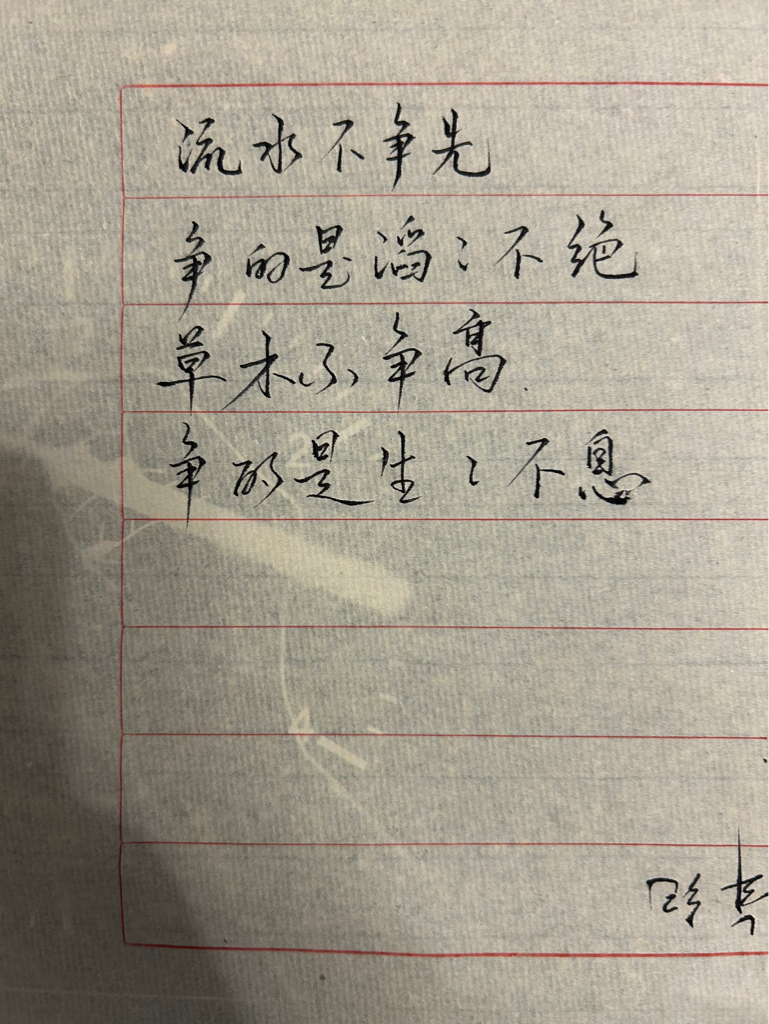 流水不争先
争的是滔〻不绝
草木不争高
争的是生〻不息